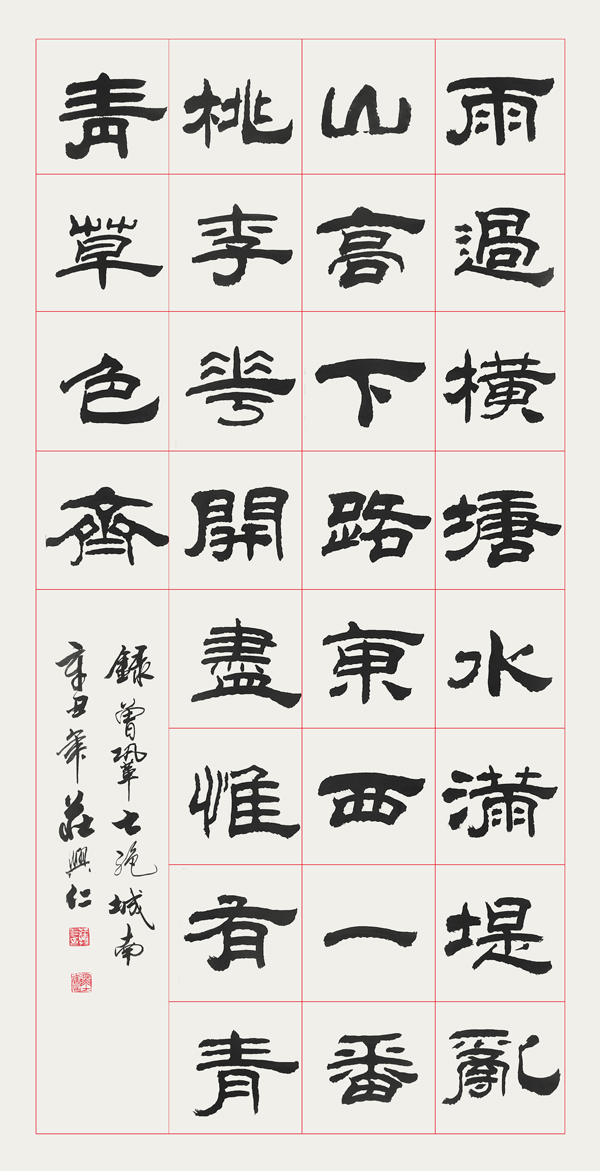 雨過橫塘水滿堤亂
山高下路東西一番
桃李華開盡惟有青
青草色齊
錄曾鞏七絕城南
辛丑年莊興仁